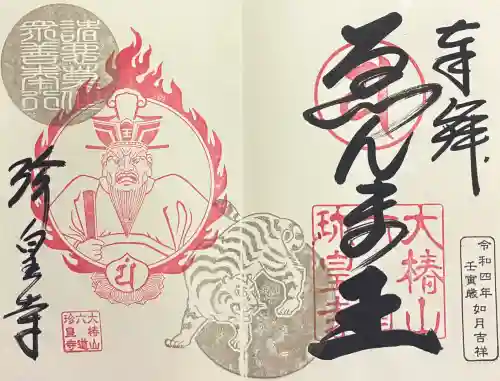 奉拝
ゑんま王
大椿山
六道
珍皇寺
令和四年
壬寅歳 如月吉祥
諸悪莫作
衆善奉行
王
珍皇寺
大椿山
六道
珍皇寺